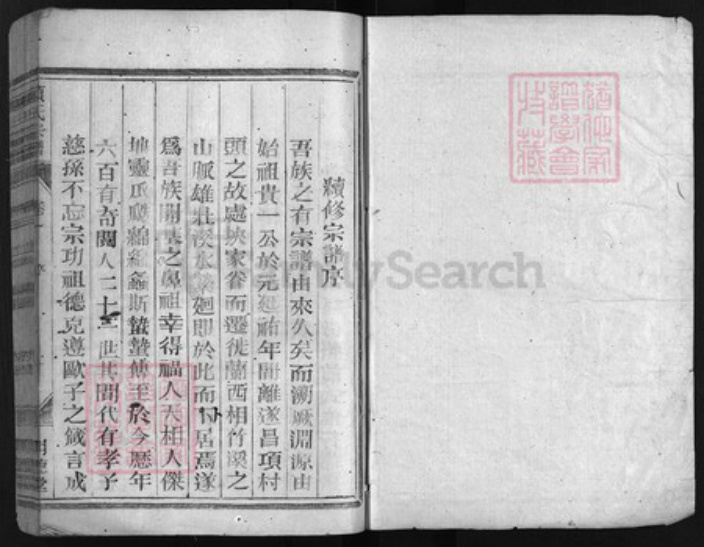 續修宗譜序
吾族之有宗譜由來久矣而溯厥淵源由
始祖貴一公於元延祐年間離遂昌項村
頭之故處挾家眷而遷徙蘭西相竹溪之
山脈雄壯溪水縈廻即於此而卜居焉遂
為吾族開基之鼻祖幸得福人天相人傑
地靈瓜瓞綿綿螽斯蟄蟄傳至於今歷年
六百有奇閱人二十二世其間代有孝子
慈孫不忘宗功祖德克遵歐子之箴言成
FamilySearch